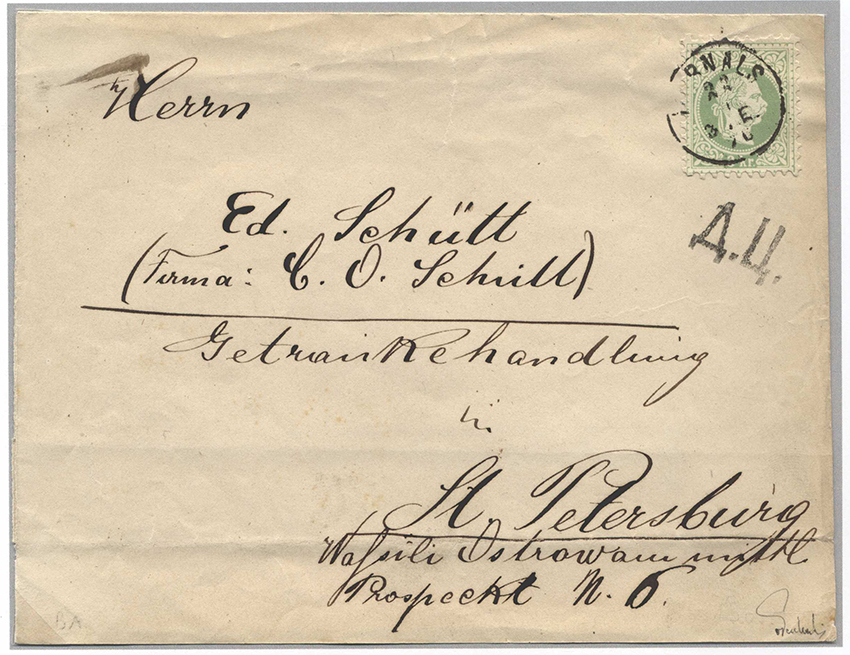 Herrn
RNALS
Ed. Schütt
Д.Ц.
(Firma: C. O. Schütt)
Getrankehandlung
in
St. Petersburg
Waßili Ostrowam mittl
Prospeckt N. 6.
BA